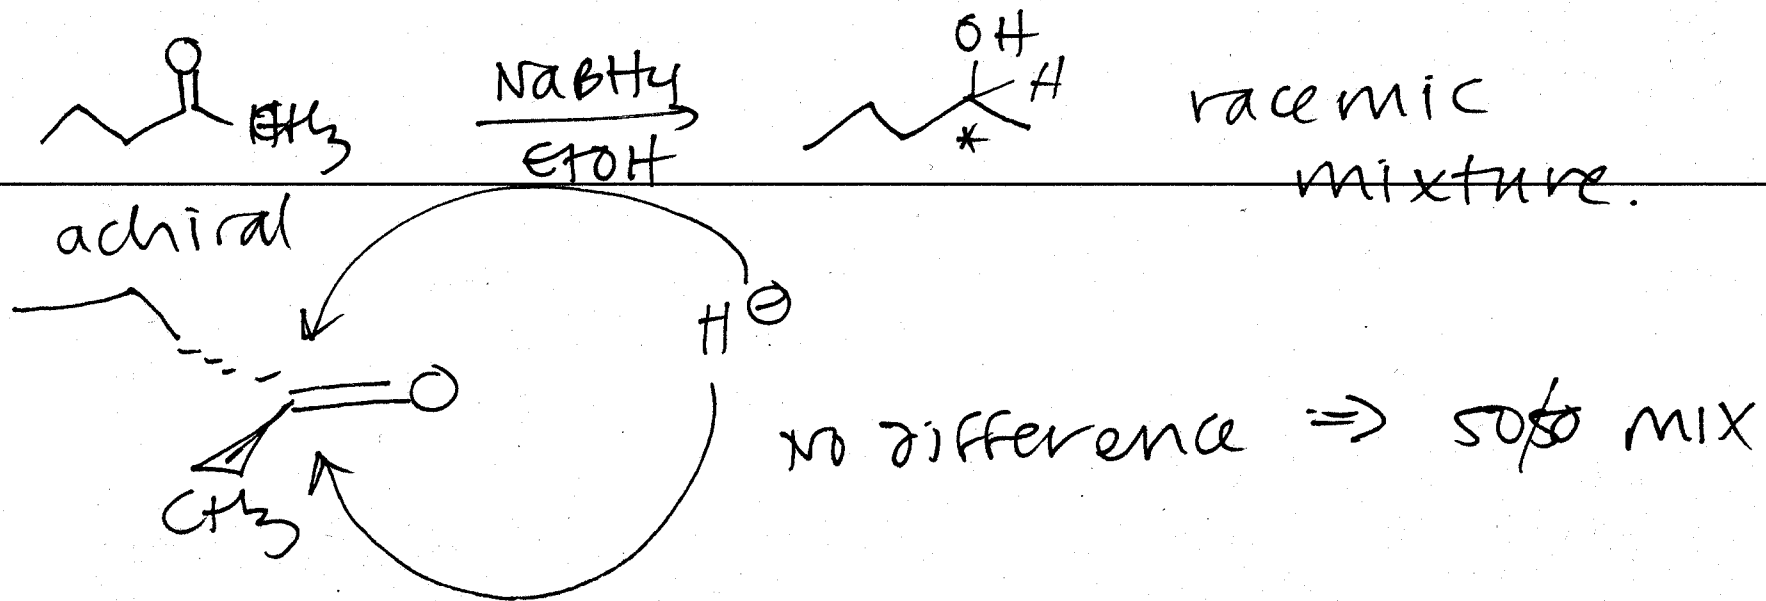 O
CH3
NaBH4
EtOH
OH
H
*
racemic
mixture.
achiral
H ⊖
O
CH3
No difference ⇒ 50/50 mix